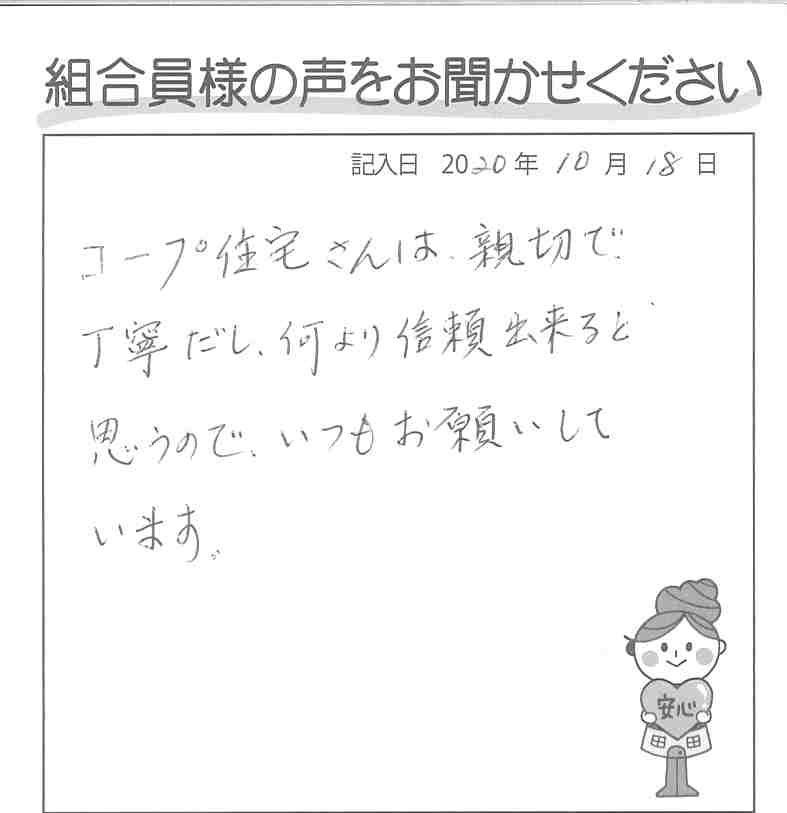 組合員様の声をお聞かせください
記入日 2020年 10月 18日
コープ住宅さんは、親切で
丁寧だし、何より信頼出来ると
思うので、いつもお願いして
います。
安心